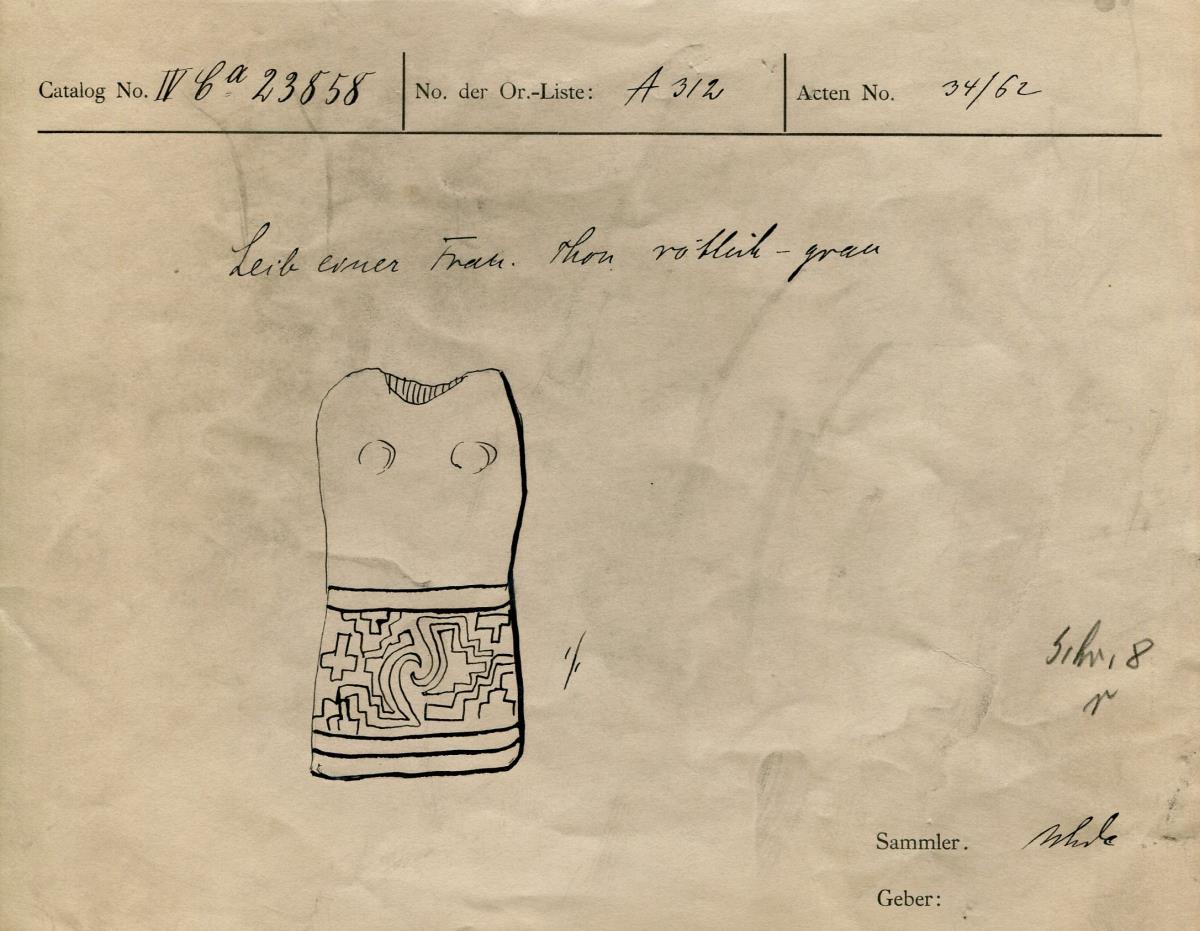 Catalog No. IV Ca 23858 No. der Or.-Liste: A 312 Acten No. 34/62
Leib einer Frau. Thon rötlich-grau
1/1
Schr. 8
r
Sammler. Uhde
Geber: